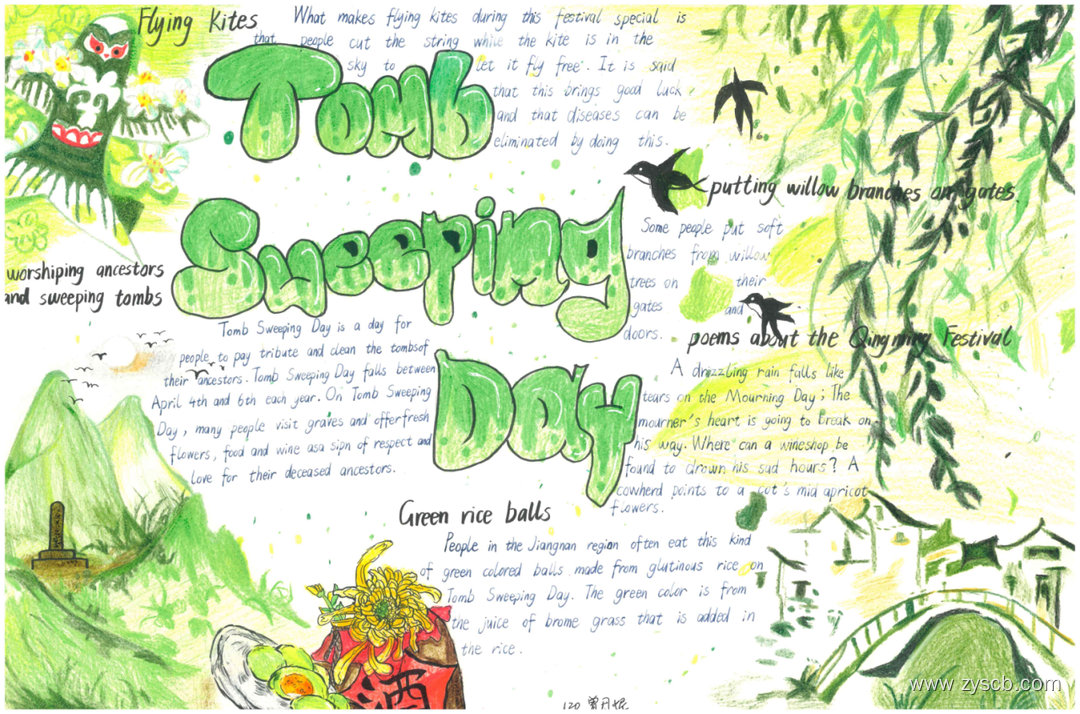 Flying Kites
What makes flying kites during this festival special is
that people cut the string while the kite is in the
sky to let it fly free. It is said
that this brings good luck
and that diseases can be
eliminated by doing this.
Tomb
Sweeping
Day
putting willow branches on gates.
Some people put soft
branches from willow
trees on their
gates and
doors.
worshiping ancestors
and sweeping tombs
Tomb Sweeping Day is a day for
people to pay tribute and clean the tombsof
their ancestors. Tomb Sweeping Day falls between
April 4th and 6th each year. On Tomb Sweeping
Day, many people visit graves and offerfresh
flowers, food and wine asa sign of respect and
love for their deceased ancestors.
poems about the Qingming Festival
A drizzling rain falls like
tears on the Mourning Day; The
mourner's heart is going to break on
his way. Where can a wineshop be
found to drown his sad hours? A
cowherd points to a cot's mid apricot
flowers.
Green rice balls
People in the Jiangnan region often eat this kind
of green colored balls made from glutinous rice on
Tomb Sweeping Day. The green color is from
the juice of brome grass that is added in
the rice.
酒
120
www.zyscb.com